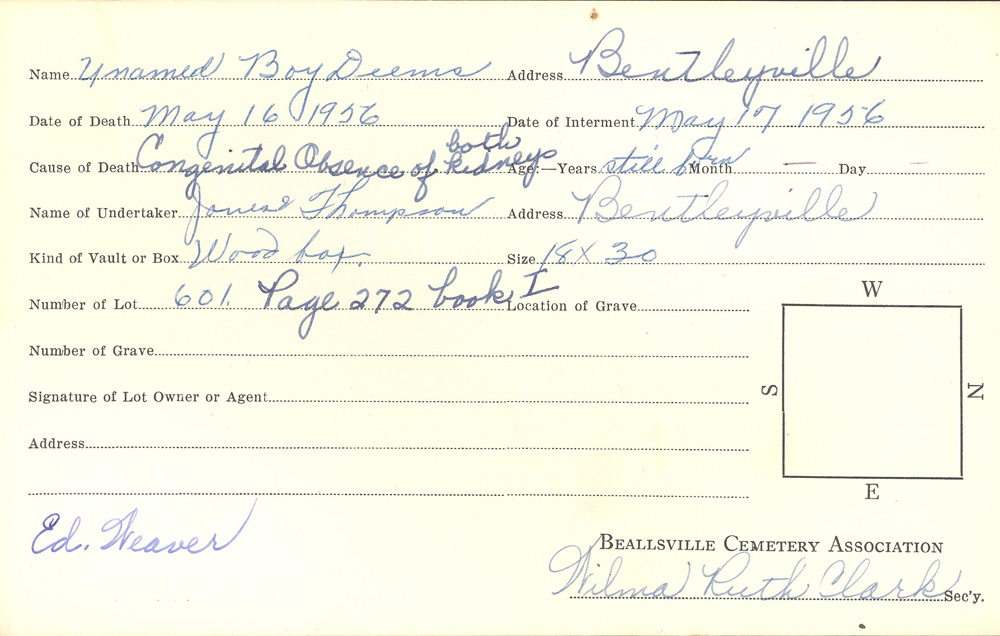 Name Unamed Boy Deems Address Bentleyville
Date of Death May 16 1956 Date of Interment May 17 1956
Cause of Death Congenital Obsence of both kidneys Age:—Years still born Month — Day —
Name of Undertaker Thompson Address Bentleyville
Kind of Vault or Box Wood box. Size 18 X 30
Number of Lot 601. Page 272 book I Location of Grave
Number of Grave
Signature of Lot Owner or Agent
Address
W
S
N
E
Ed. Weaver
BEALLSVILLE CEMETERY ASSOCIATION
Wilma Ruth Clark Sec'y.